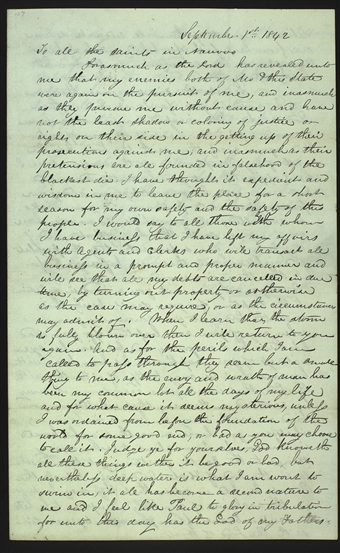 September 1st 1842
To all the saints in Nauvoo
Forasmuch as the Lord has revealed unto
me that my enemies both of Mo & this State
were again on the pursuit of me, and inasmuch
as they pursue me without cause and have
not the least shadow or coloring of justice or
right on their side in the getting up of their
prosecutions against me; and inasmuch as their
pretensions are all founded in falsehood of the
blackest die. I have thought it expedient and
wisdom in me to leave the place for a short
season for my own safety and the safety of the
people. I would say to all those with whom
I have business that I have left my affairs
with agents and clerks who will transact all
business in a prompt and proper manner and
will see that all my debts are cancelled in due
time, by turning out property or otherwise
as the case may require, or as the circumstances
may admit of. When I learn that the storm
is fully blown over then I will return to you
again. And as for the perils which I am
called to pass through they seem but a small
thing to me, as the envy and wrath of man has
been my common lot all the days of my life
and for what cause it seems mysterious, unless
I was ordained from before the foundation of the
world for some good end, or bad as you may choose
to call it. Judge ye for yourselves, God knoweth
all these things whether it be good or bad, but
nevertheless deep water is what I am wont to
swim in, it all has become a second nature to
me and I feel like Paul to glory in tribulation
for unto this day has the God of my Fathers